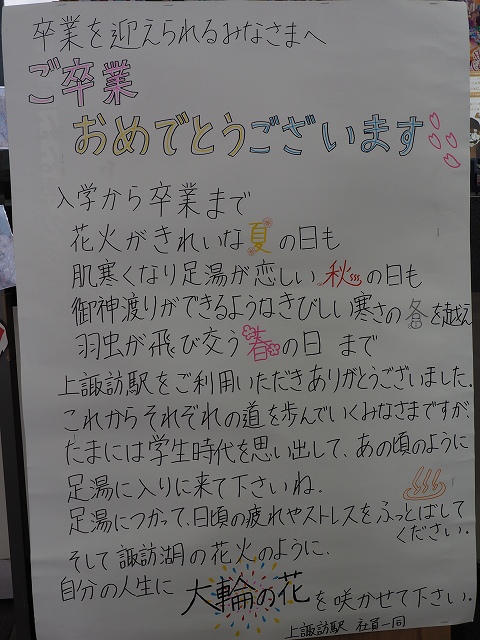 卒業を迎えられるみなさまへ
ご卒業
おめでとうございます
入学から卒業まで
花火がきれいな夏の日も
肌寒くなり足湯が恋しい秋の日も
御神渡りができるようなきびしい寒さの冬を越え
羽虫が飛び交う春の日まで
上諏訪駅をご利用いただきありがとうございました。
これからそれぞれの道を歩んでいくみなさまですが、
たまには学生時代を思い出して、あの頃のように
足湯に入りに来て下さいね。
足湯につかって、日頃の疲れやストレスをふっとばして
ください。
そして諏訪湖の花火のように、
自分の人生に大輪の花を咲かせて下さい。
上諏訪駅 社員一同